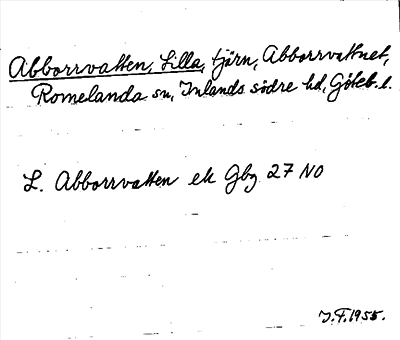 Abborrvatten, Lilla, tjärn, Abborrvattnet,
Romelanda sn, Inlands södre hd, Göteb. l.
L. Abborrvatten ek Gbg 27 NO
J.F. 1955.